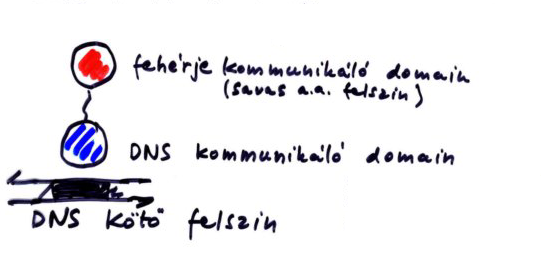 fehérje kommunikáló domain
(savas a.a. felszín)
DNS kommunikáló domain
DNS kötő felszin